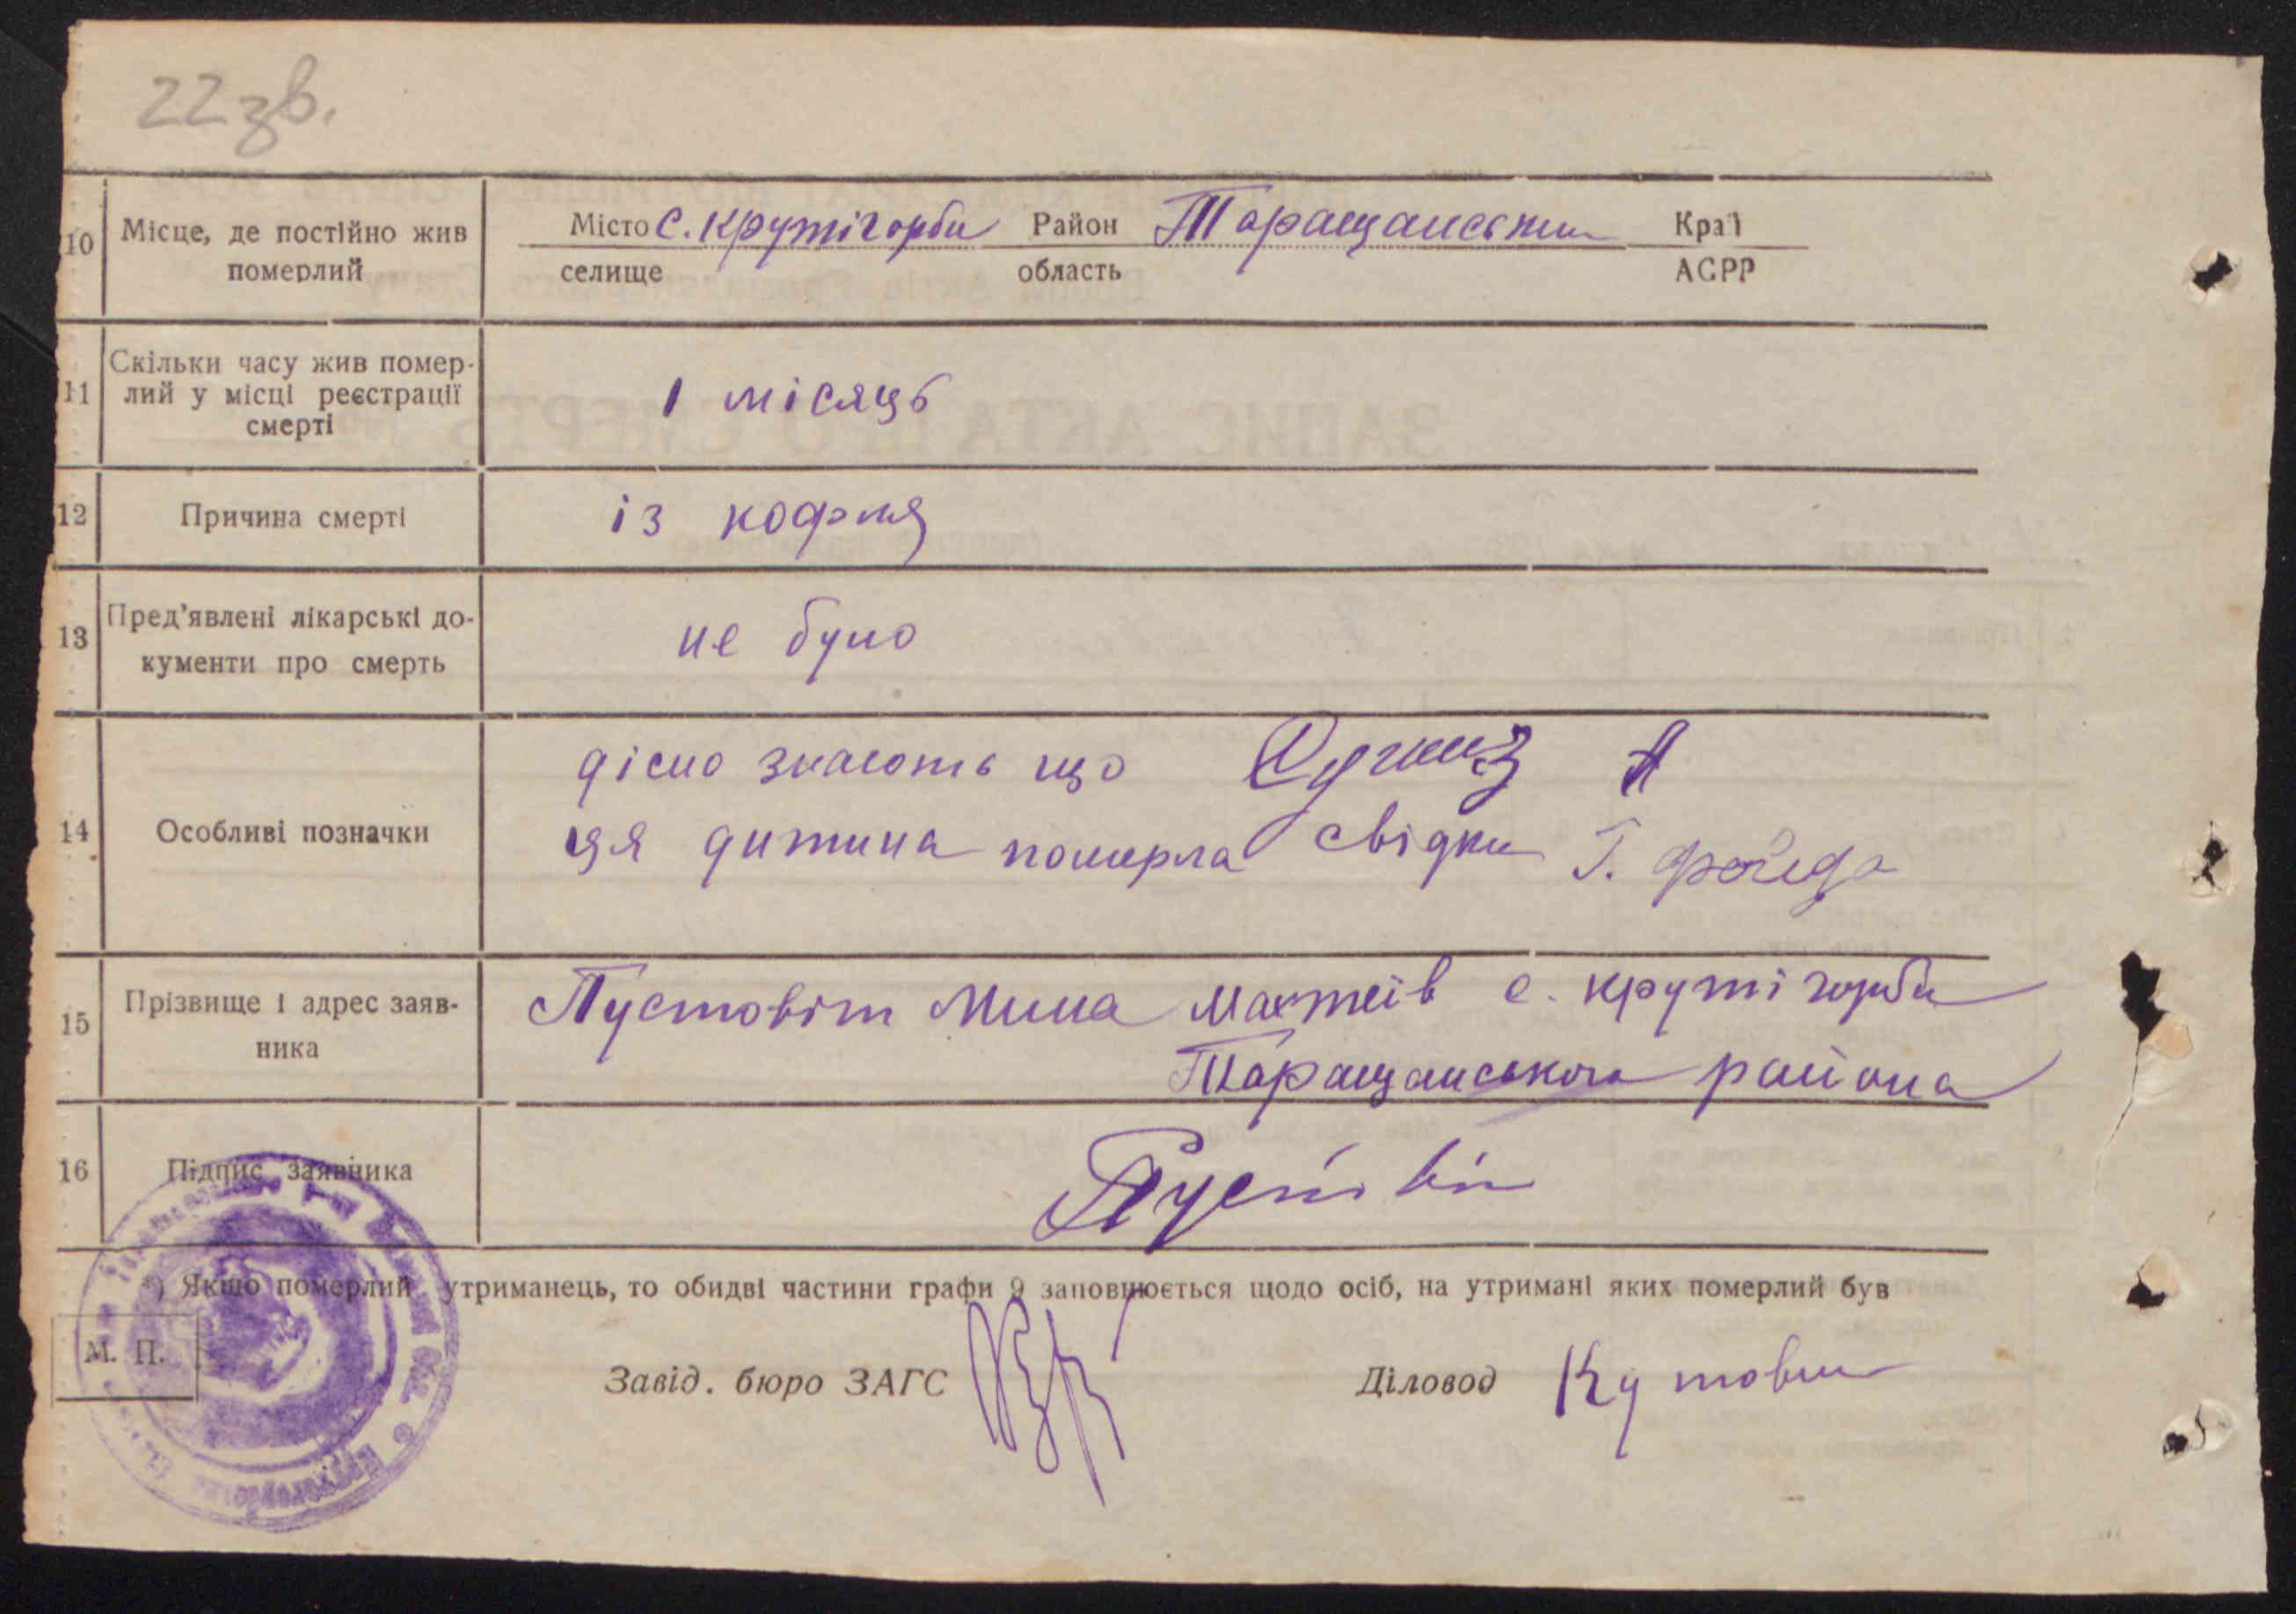 22 зв.
10 Місце, де постійно жив померлий
Місто с. Крутігорби Район Таращанськи Краї
селище область АСРР
11 Скільки часу жив помер-
лий у місці реєстрації
смерті
1 місяць
12 Причина смерті
із
13 Пред'явлені лікарські до-
кументи про смерть
не було
14 Особливі позначки
дісно знають що А
ця дитина померла свідки Г.
15 Прізвище і адрес заяв-
ника
Пустовіт Мина Матеїв с. крутігорби
Таращанського района
16 Підпис заявника
Пустовіт
*) Якщо померлий утриманець, то обидві частини графи 9 заповнюється щодо осіб, на утримані яких померлий був
М. П.
Завід. бюро ЗАГС
Діловод Кутовий